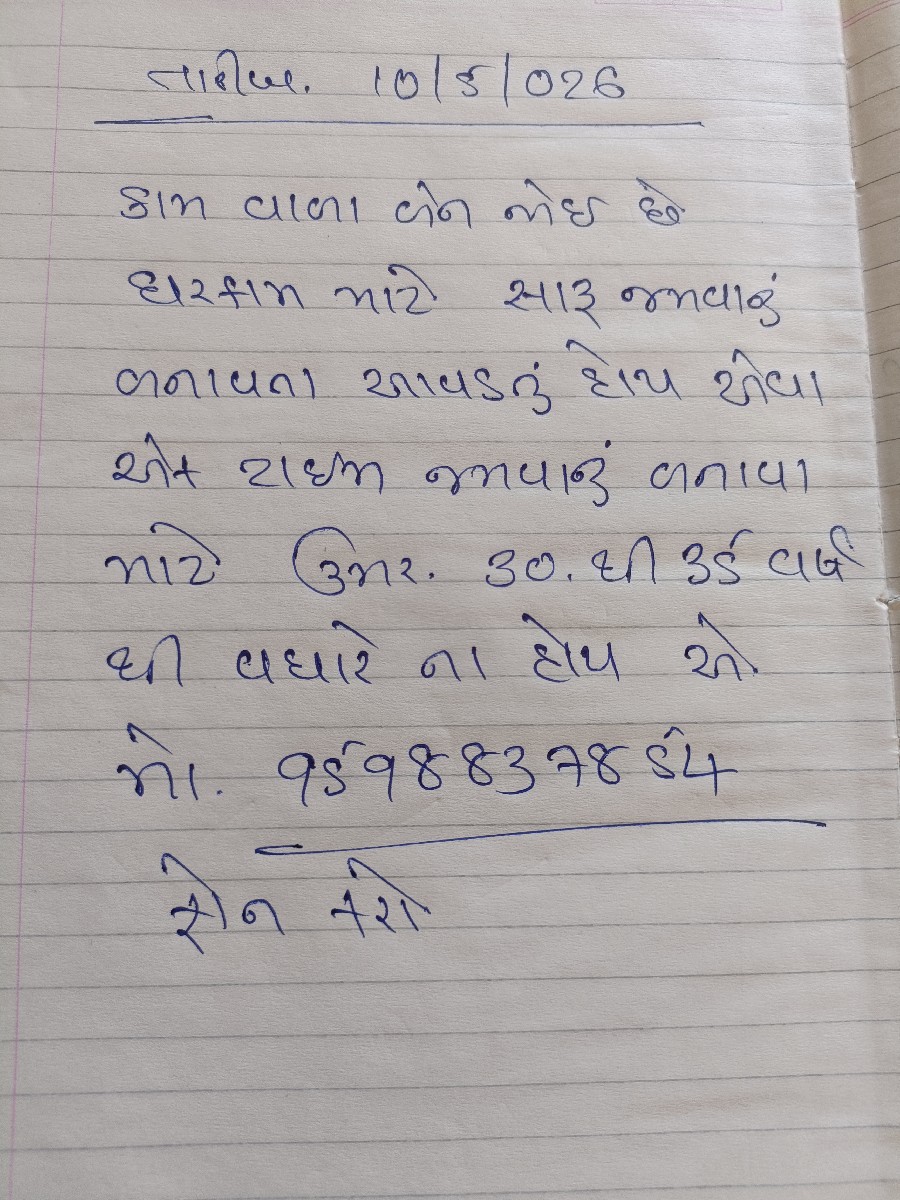 તારીખ. 10/5/026
કામ વાળા બેન જોઇ છે
ઘરકામ માટે સારૂ જમવાનું
બનાવતા આવડતું હોય એવા
એક ટાઇમ જમવાનું બનાવા
માટે ઉમર. 30. થી 35 વર્ષ
થી વધારે ના હોય એ
મો. 9598837854
ફોન કરો